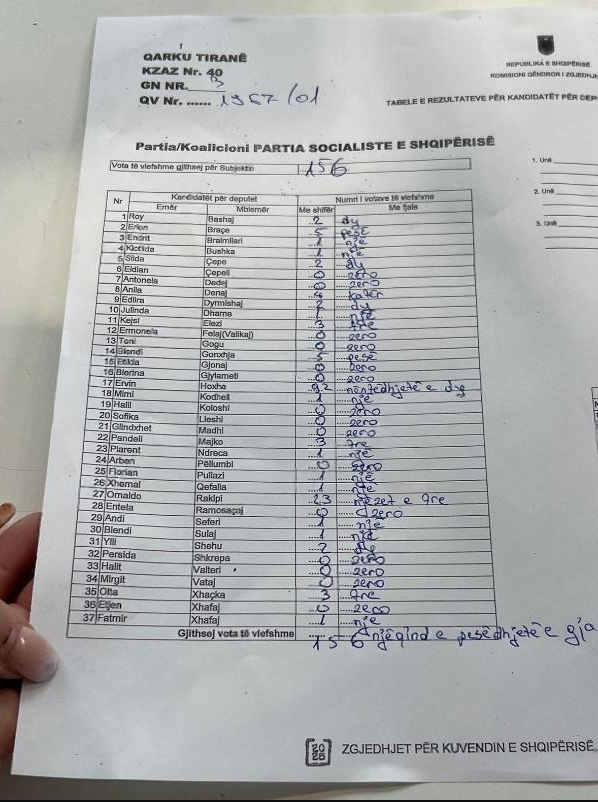 QARKU TIRANË
KZAZ Nr. 40
GN NR. 3
QV Nr. ...... 1967/01
REPUBLIKA E SHQIPËRISË
KOMISIONI QENDROR I ZGJEDHJE
TABELE E REZULTATEVE PËR KANDIDATËT PËR DEP
Partia/Koalicioni PARTIA SOCIALISTE E SHQIPËRISË
Vota të vlefshme gjithsej për Subjektin 156
1. Unë
2. Unë
3. Unë
Nr Kandidatët për deputet Numri i votave të vlefshme
Emër Mbiemër Me shifër Me fjalë
1 Roy Bashaj 2 dy
2 Erion Braçe 5 pesë
3 Endrit Braimllari 1 një
4 Klotilda Bushka 1 një
5 Silda Çepe 2 dy
6 Eldian Çepeli 0 zero
7 Antonela Dedej 0 zero
8 Anila Denaj 4 katër
9 Edlira Dyrmishaj 2 dy
10 Julinda Dhame 1 një
11 Kejsi Elezi 3 tre
12 Ermonela Felaj(Valikaj) 0 zero
13 Toni Gogu 0 zero
14 Blendi Gonxhja 5 pesë
15 Etilda Gjonaj 0 zero
16 Blerina Gjylameti 0 zero
17 Ervin Hoxha 92 nëntëdhjetë e dy
18 Mimi Kodheli 1 një
19 Halil Koloshi 0 zero
20 Sofika Lleshi 0 zero
21 Gllndxhet Madhi 0 zero
22 Pandeli Majko 3 tre
23 Plarent Ndreca 1 një
24 Arben Pëllumbi 0 zero
25 Florian Pullazi 1 një
26 Xhemal Qefalia 1 një
27 Ornaldo Rakipi 23 njëzet e tre
28 Entela Ramosaçaj 0 zero
29 Andi Seferi 1 një
30 Blendi Sulaj 1 një
31 Ylli Shehu 2 dy
32 Persida Shkrepa 0 zero
33 Halit Valteri 0 zero
34 Mirgit Vataj 0 zero
35 Olta Xhaçka 3 tre
36 Etjen Xhafaj 0 zero
37 Fatmir Xhafaj 1 një
Gjithsej vota të vlefshme 156 njëqind e pesëdhjetë e gja
2025 ZGJEDHJET PËR KUVENDIN E SHQIPËRISË,